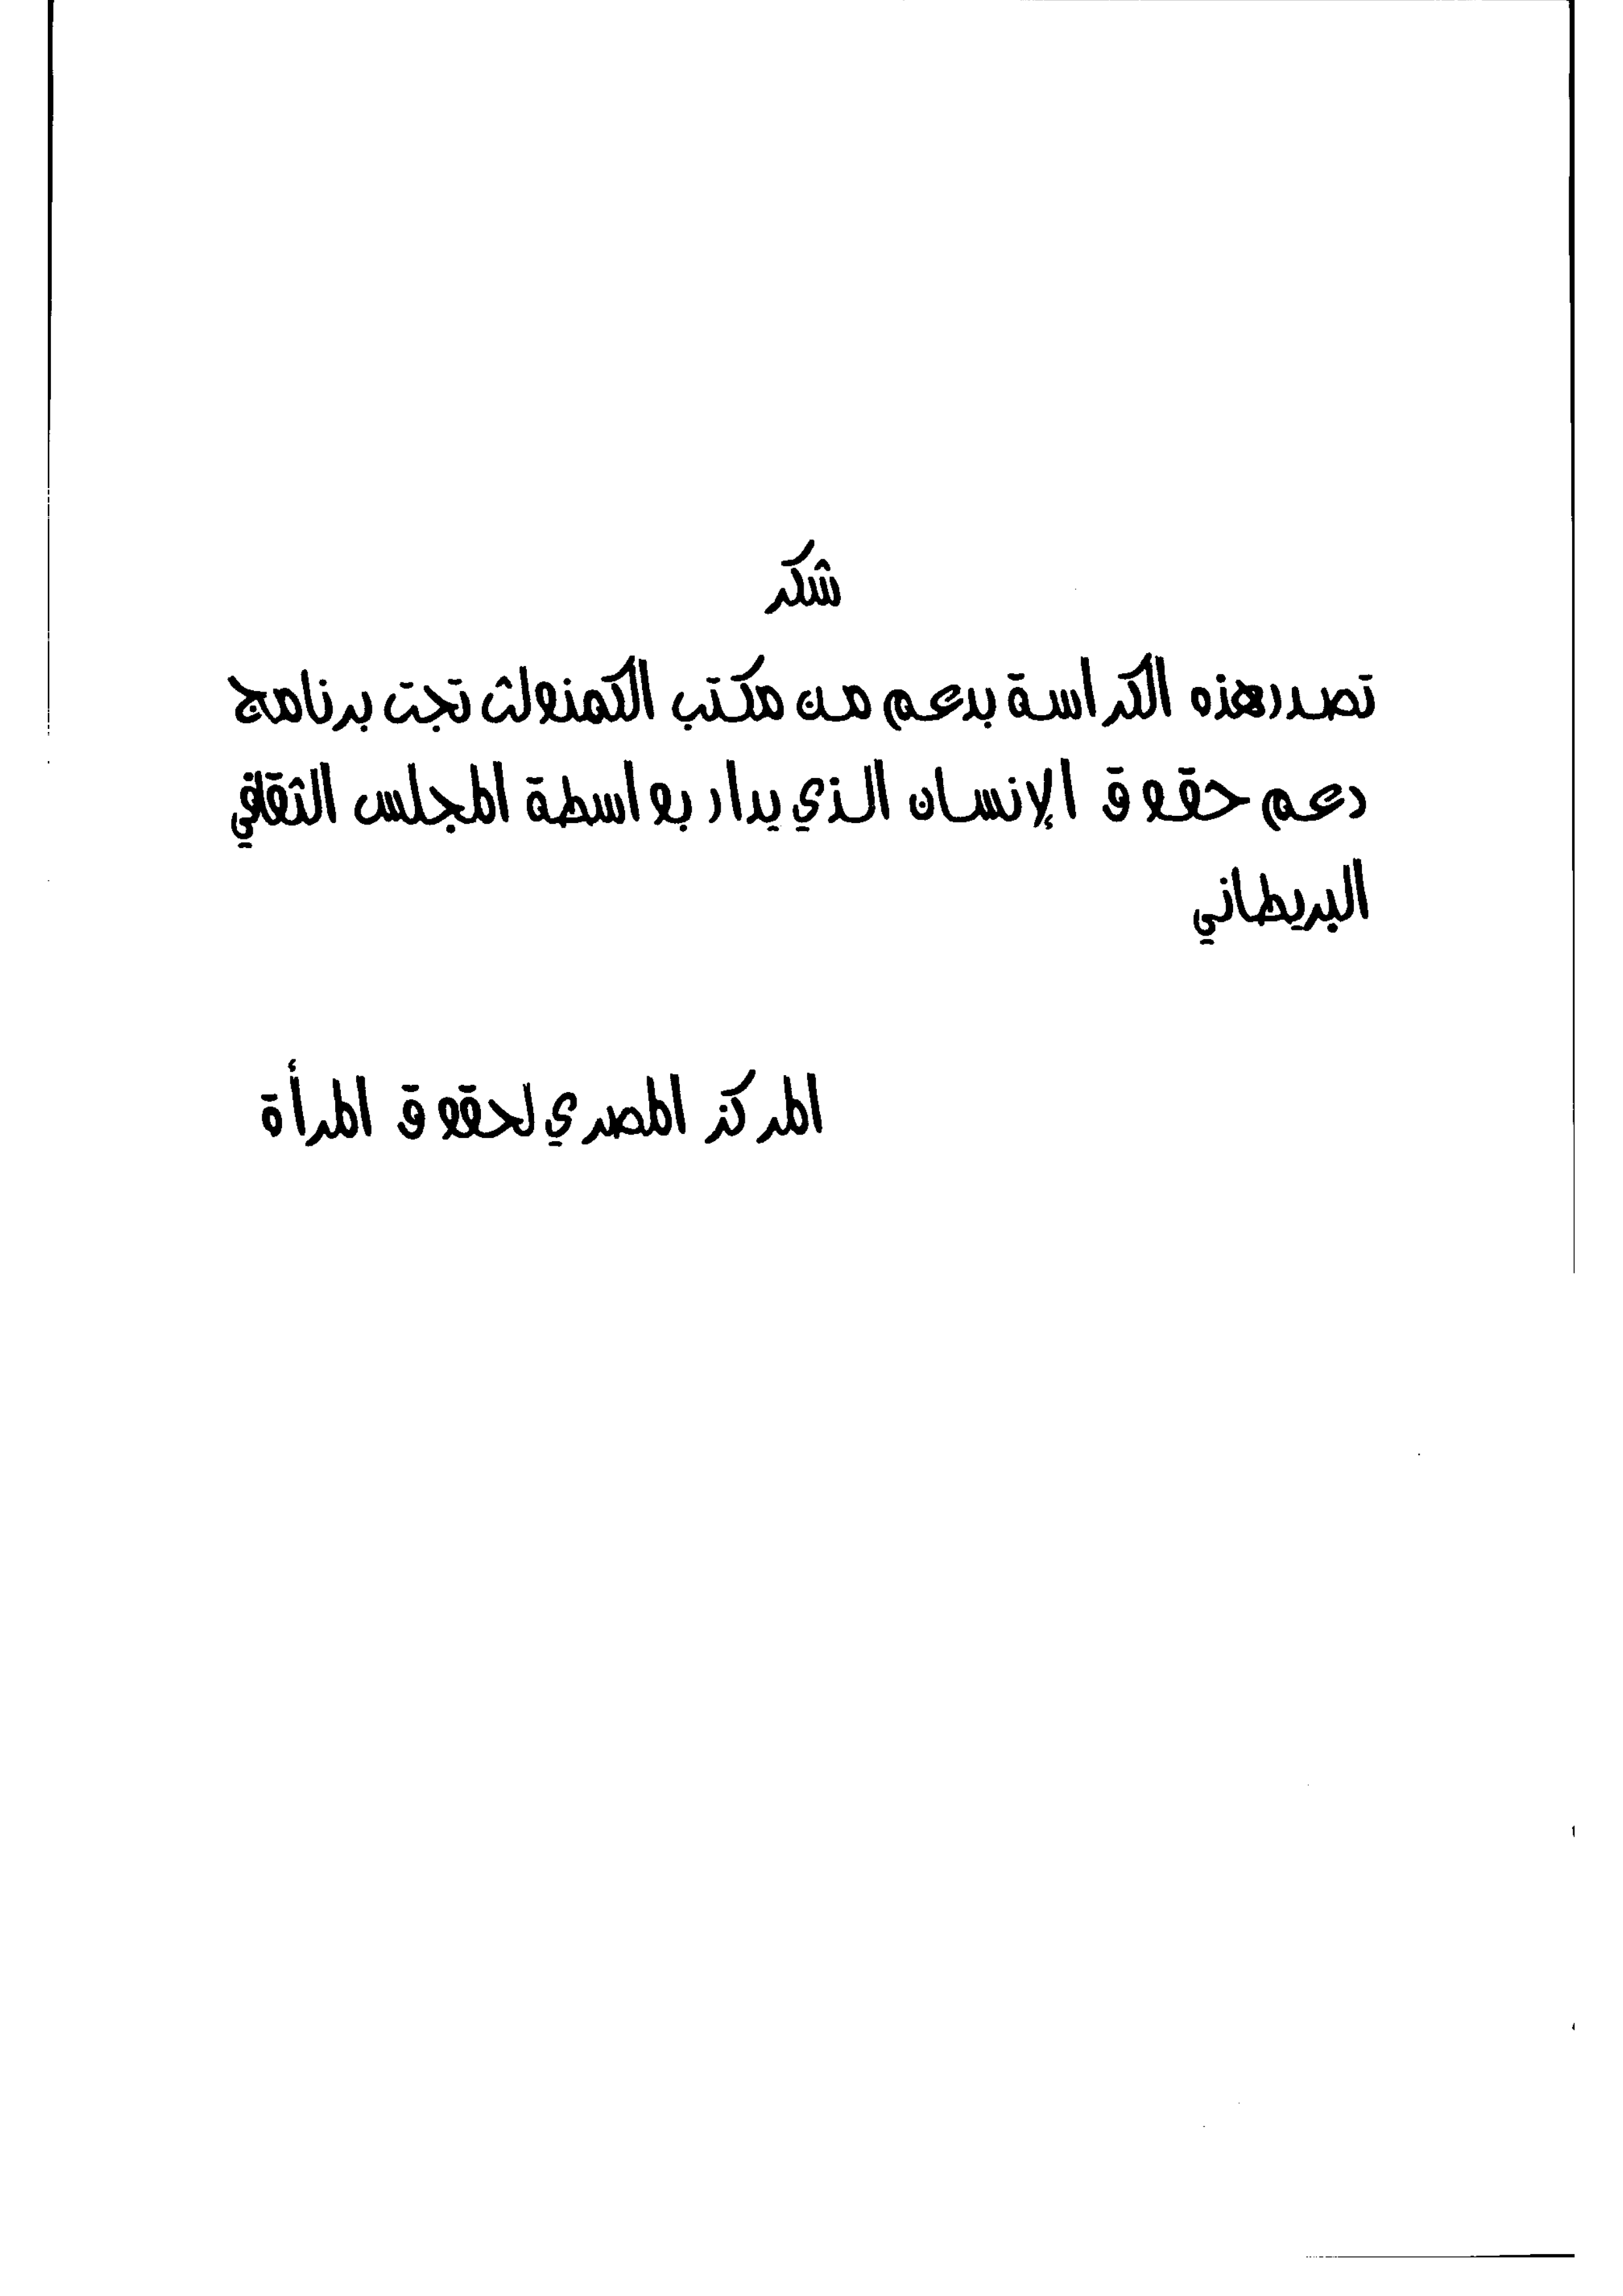 شكر
تصدر هذه الكراسة بدعم من مكتب الكمنولث تجت برنامج
دعم حقوق الإنسان الذي يدار بواسطة المجلس الثقافي
البريطاني
المركز المصري لحقوق المرأة